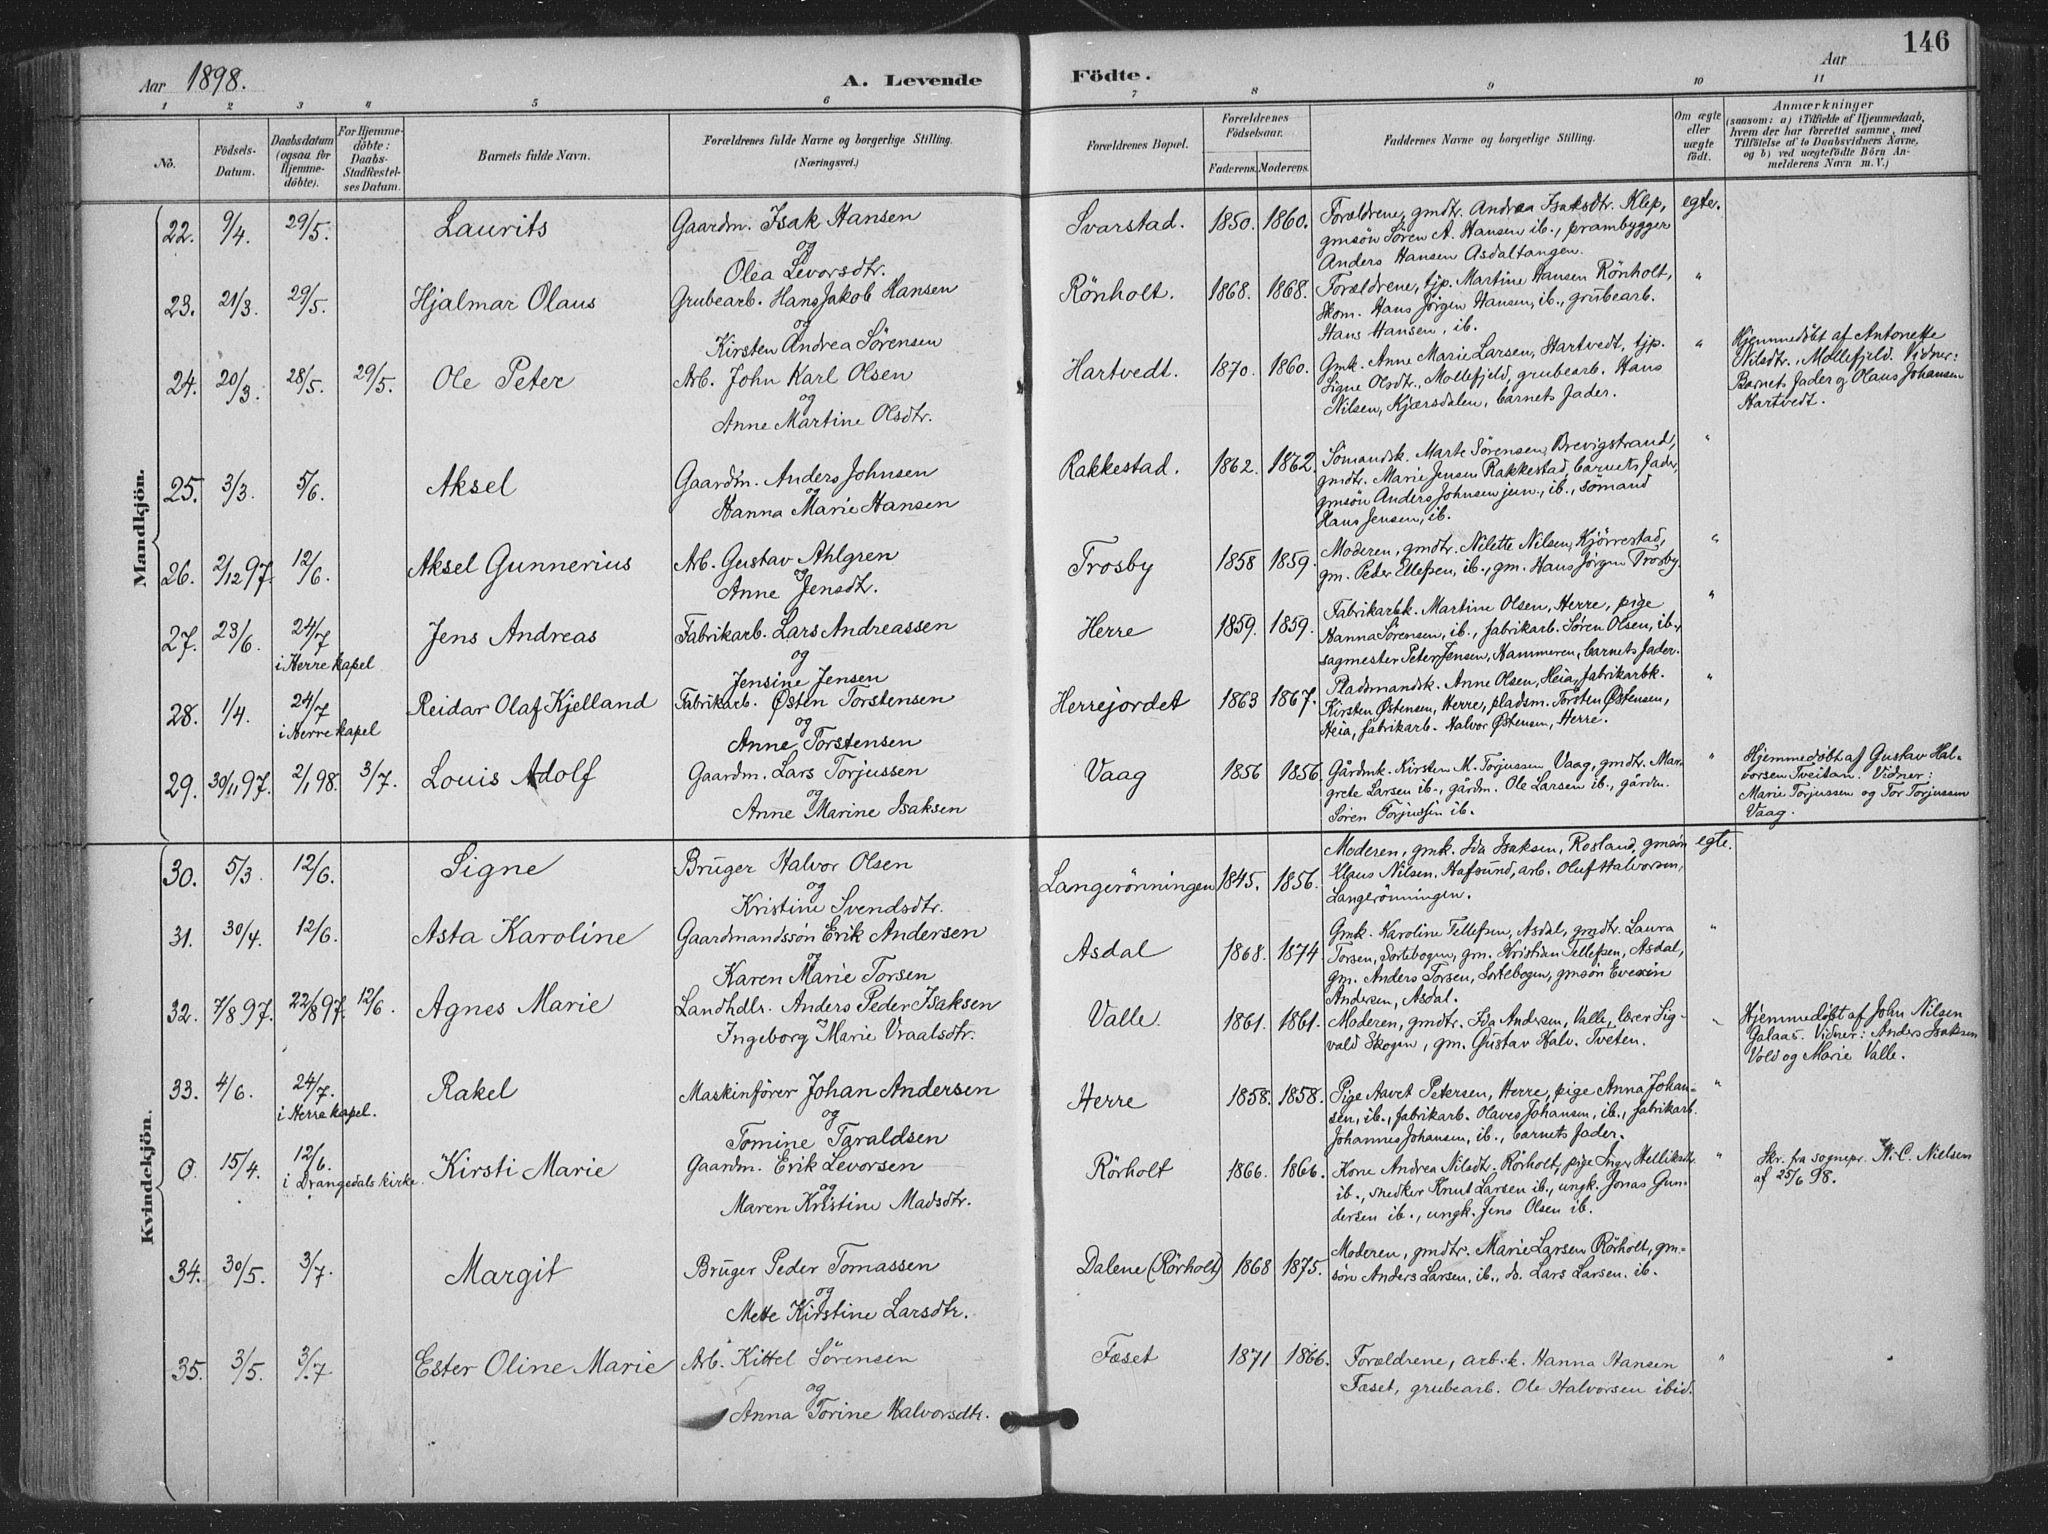 146
Aar 1898.
A. Levende Födte.
Aar
1 2 3 4 5 6 7 8 9 10 11
No.
Födsels-Datum.
Daabsdatum (ogsaa for Hjemmedöbte).
For Hjemmedöbte: Daabs-Stadfæstelses Datum.
Barnets fulde Navn.
Forældrenes fulde Navne og borgerlige Stilling. (Næringsvei.)
Forældrenes Bopæl.
Forældrenes Födselsaar.
Faderens. Moderens.
Faddernes Navne og borgerlige Stilling.
Om ægte eller uægte födt.
Anmærkninger
(saasom: a) i Tilfælde af Hjemmedaab, hvem der har forrettet samme, med Tilföielse af to Daabsvidners Navne, og b) ved uægtefödte Börn Anmelderens Navn m. V.)
Mandkjön.
22. 9/4. 29/5. Laurits
Gaardm. Isak Hansen
og
Olea Levorsdtr.
Svarstad. 1850. 1860.
Forældrene, gmdtr. Andrea Isaksdtr. Klep,
gmsön Sören A. Hansen ib., prambygger
Anders Hansen Asdaltangen.
egte.
23. 21/3. 29/5. Hjalmar Olaus
Grubearb. Hans Jakob Hansen
og
Kirsten Andrea Sørensen
Rönholt. 1868. 1868.
Forældrene, tjp. Martine Hansen Rönholt,
Skom. Hans Jörgen Hansen, ib., grubearb.
Hans Hansen, ib.
"
24. 20/3. 28/5. 29/5. Ole Peter
Arb. John Karl Olsen
og
Anne Martine Olsdtr.
Hartvedt. 1870. 1860.
Gmk. Anne Marie Larsen, Hartvedt, tjp.
Signe Olsdtr., Mollefjeld, grubearb. Hans
Nilsen, Kjærsdalen, barnets fader.
"
Hjemmedöbt af Antonette
Nilsdtr. Mollefjeld. Vidner:
Barnets fader og Olaus Johansen
Hartvedt.
25. 3/3. 5/6. Aksel
Gaardm. Anders Johnsen
og
Hanna Marie Hansen
Rakkestad. 1862. 1862.
Sömandsk. Marte Sörensen, Brevigstrand,
gmdtr. Marie Jensen Rakkestad, barnets fader,
gmsön Anders Johnsen jun., ib., sömand
Hans Jensen, ib.
"
26. 2/12 97. 12/6. Aksel Gunnerius
Arb. Gustav Ahlgren
og
Anne Jensdtr.
Trosby 1858 1859.
Moderen, gmdtr. Nilette Nilsen, Kjörrestad,
gm. Peder Ellefsen, ib., gm. Hans Jörgen Trosby.
"
27. 23/6. 24/7 i Herre kapel Jens Andreas
Fabrikarb. Lars Andreassen
og
Jensine Jensen
Herre 1859. 1859.
Fabrikarbk. Martine Olsen, Herre, pige
Hanna Sørensen, ib., fabrikarb. Søren Olsen, ib.,
sagmester Peter Jensen, Hammeren, barnets fader.
"
28. 1/4. 24/7 i Herre kapel Reidar Olaf Kjelland
Fabrikarb. Østen Torstensen
og
Anne Torstensen
Herrejordet 1863 1867.
Pladsmandsk. Anne Olsen, Heia, fabrikarbk.
Kirsten Østensen, Herre, pladsm. Torsten Østensen,
Heia, fabrikarb. Halvor Østensen, Herre.
"
29. 30/11 97. 2/1 98. 3/7. Louis Adolf
Gaardm. Lars Torjussen
og
Anne Marine Isaksen
Vaag 1856 1856.
Gårdmk. Kirsten M. Torjussen Vaag, gmdtr. Mar-
grete Larsen ib., gårdm. Ole Larsen ib., gårdm.
Sören Torjussen ib.
"
Hjemmedøbt af Gustav Hal-
vorsen Tveitan. Vidner:
Marie Torjussen og Tor Torjussen
Vaag.
Kvindekjön.
30. 5/3. 12/6. Signe
Bruger Halvor Olsen
og
Kristine Svendsdtr.
Langerönningen 1845. 1856.
Moderen, gmk. Ida Isaksen, Rosland, gmsön
Klaus Nilsen. Hafsund, arb. Oluf Halvorsen,
Langerönningen.
egte.
31. 30/4. 12/6. Asta Karoline
Gaardmandssön Erik Andersen
og
Karen Marie Torsen
Asdal 1868. 1874
Gmk. Karoline Tellefsen, Asdal, gmdtr. Laura
Torsen, Sortebogen, gm. Kristian Tellefsen, Asdal,
gm. Anders Torsen, Sortebogen, gmsön
Andersen, Asdal.
"
32. 7/8 97. 22/8 97. 12/6. Agnes Marie
Landhdlr. Anders Peder Isaksen
og
Ingeborg Marie Vraalsdtr.
Valle. 1861. 1861.
Moderen, gmdtr. Ida Andersen, Valle, lærer Sig-
vald Skogen, gm. Gustav Halv. Tveten.
"
Hjemmedøbt af John Nilsen
Galaas. Vidner: Anders Isaksen
Vold og Marie Valle.
33. 4/6. 24/7. i Herre kapel. Rakel
Maskinfører Johan Andersen
og
Tomine Taraldsen
Herre 1858. 1858.
Pige Aavet Petersen, Herre, pige Anna Johan-
sen, ib., fabrikarb. Olaves Johansen, ib., fabrikarb.
Johannes Johansen, ib., barnets fader.
"
0. 15/4. 12/6. i Drangedals kirke. Kirsti Marie
Gaardm. Erik Levorsen
og
Maren Kristine Madsdtr.
Rörholt 1866. 1866.
Kone Andrea Nilsdtr. Rörholt, pige Inger Helliksdtr.
ib., snedker Knut Larsen ib., ungk. Jonas Gun-
dersen ib., ungk. Jens Olsen ib.
"
Skr. fra sognepr. N. C. Nielsen
af 25/6 98.
34. 30/5. 3/7. Margit
Bruger Peder Tomassen
og
Mette Kirstine Larsdtr.
Dalene (Rörholt) 1868 1875.
Moderen, gmdtr. Marie Larsen Rörholt, gm-
sön Anders Larsen, ib., do. Lars Larsen. ib.
35. 3/5. 3/7 Ester Oline Marie
Arb. Kittel Sörensen
og
Anna Torine Halvorsdtr.
Fæset 1871 1866.
Forældrene, arb.k. Hanna Hansen
Fæset, grubearb. Ole Halvorsen ibid.
"